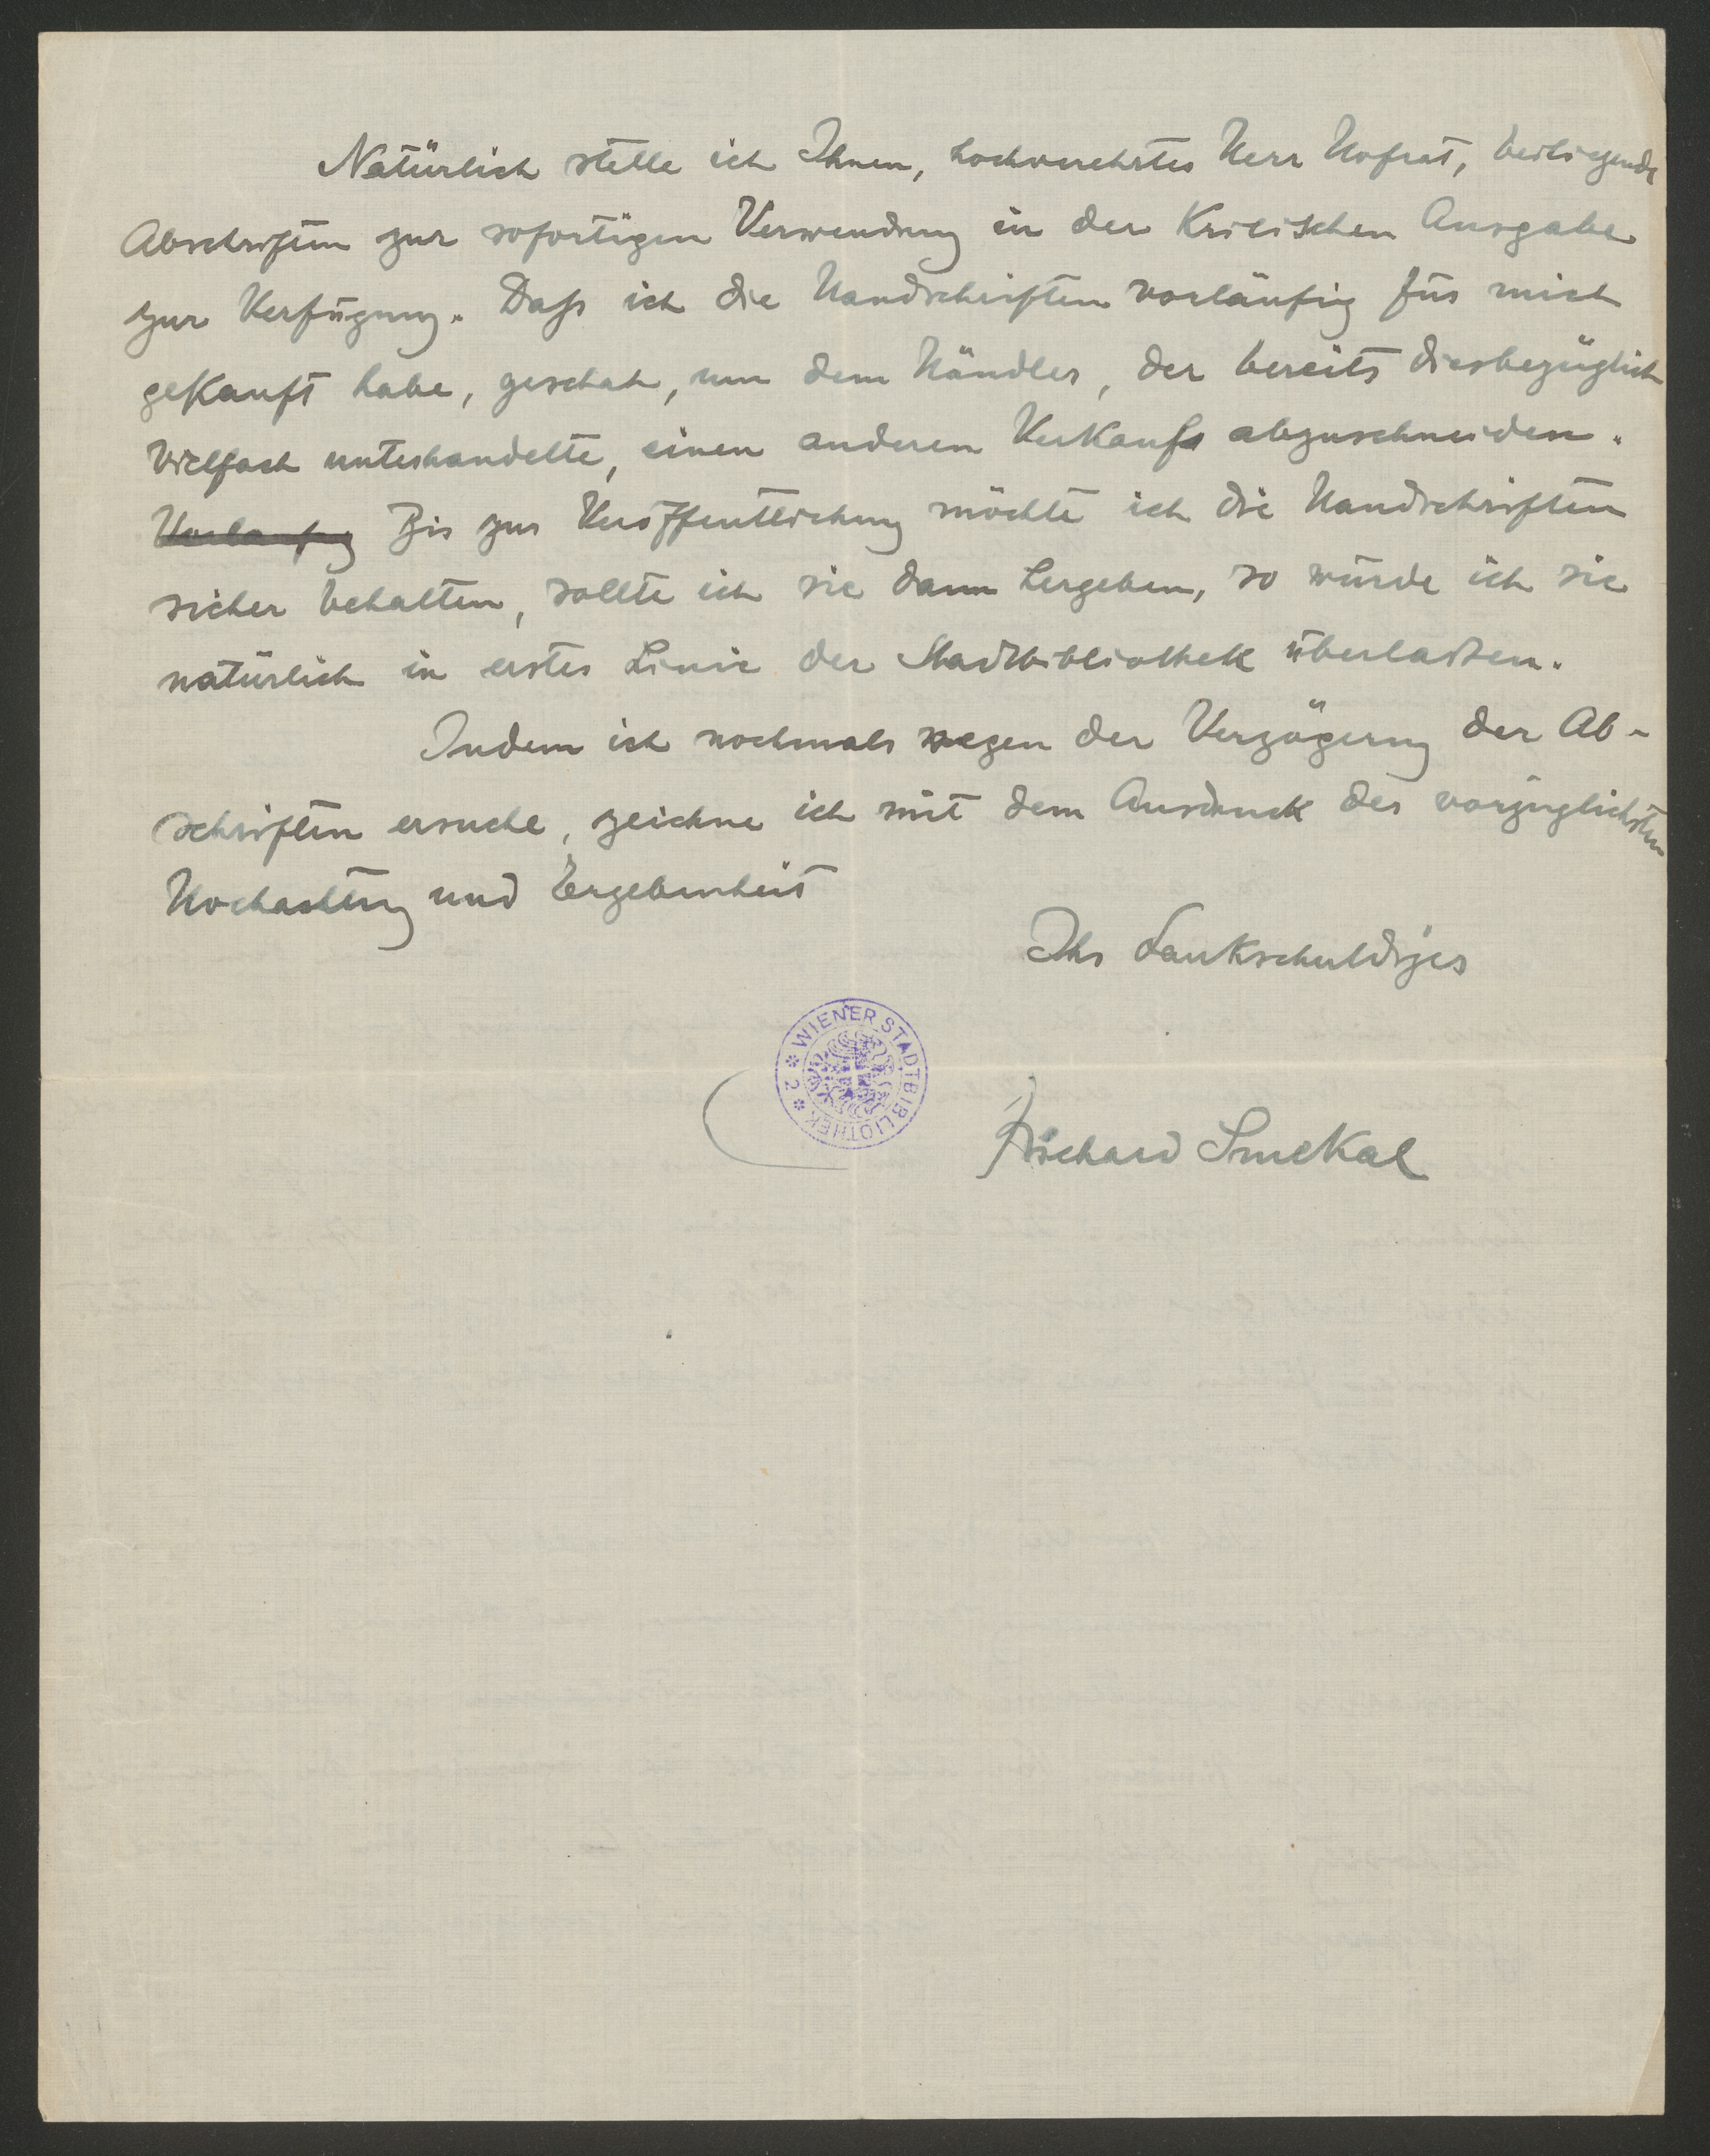 Natürlich stelle ich Ihnen, hochverehrter Herr Hofrat, beiliegende
Abschriften zur sofortigen Verwendung in der Kritischen Ausgabe
zur Verfügung. Daß ich die Handschriften vorläufig für mich
gekauft habe, geschah, um dem Händler, der bereits diesbezüglich
vielfach unterhandelte, einen anderen Verkauf abzuschneiden.
Vorläufig Bis zur Veröffentlichung möchte ich die Handschriften
sicher behalten, sollte ich sie dann hergeben, so würde ich sie
natürlich in erster Linie der Stadtbibliothek überlassen.
Indem ich nochmals wegen der Verzögerung der Ab-
schriften ersuche, zeichne ich mit dem Ausdruck der vorzüglichsten
Hochachtung und Ergebenheit
Ihr dankschuldiger
WIENER STADTBIBLIOTHEK * 2 *
Richard Smekal